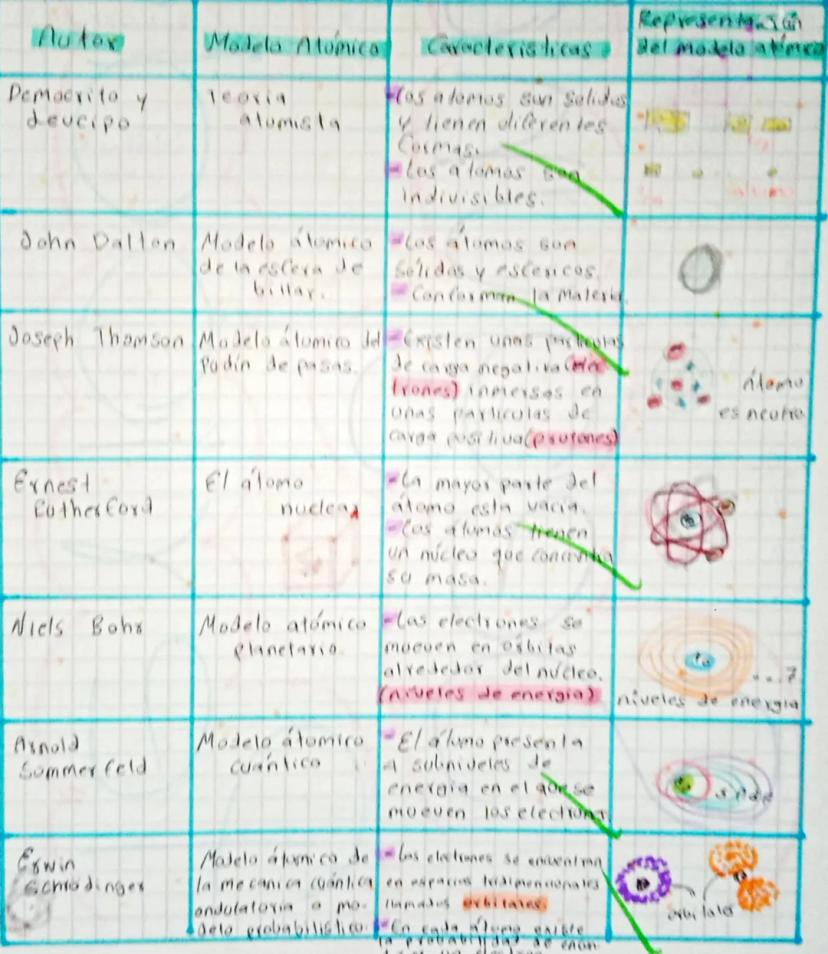 Autor
Modelo Atómico
Características
Representación
del modelo atómico
Democrito y
Leucipo
Teoria
atomista
Los atomos son solidos
y tienen diferentes
formas.
Los atomos son
indivisibles.
John Dalton
Modelo átomico
de la esfera de
billar.
Los átomos son
sólidos y esfericos.
Conforman la materia.
Joseph Thomson
Modelo átomico del
Pudín de pasas.
Existen unas partículas
de carga negativa (elec
trones) inmersas en
unas particulas de
carga positiva (protones)
átomo
es neutro
Ernest
Rutherford
El átomo
nuclear
La mayor parte del
átomo esta vacía.
Los átomos tienen
un núcleo que concentra
su masa.
Niels Bohr
Modelo atómico
planetario.
Los electrones se
mueven en orbitas
alrededor del núcleo.
(niveles de energia)
...7
niveles de energía
Arnold
Sommerfeld
Modelo átomico
cuántico
El átomo presenta
a subniveles de
energia en el que se
mueven los electrones
Erwin
Schrodinger
Modelo átomico de
la mecanica cuántica
ondulatoria o mo-
delo probabilistico.
Los electrones se encuentran
en espacios tridimencionales
llamados orbitales
En cada átomo existe
la probabilidad de encon
orbitales